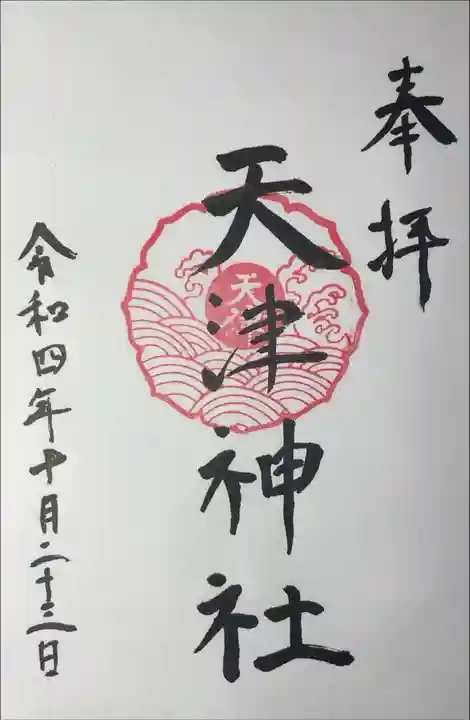 奉拝
天津神社
令和四年十月二十三日